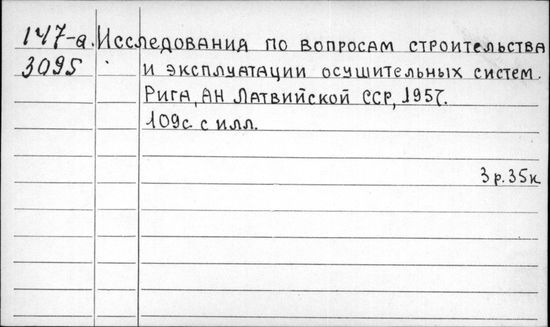 147-а. Исследования по вопросам строительства
3095 и эксплуатации осушительных систем.
Рига, АН Латвийской ССР, 1957.
109с. с илл.
3р. 35к